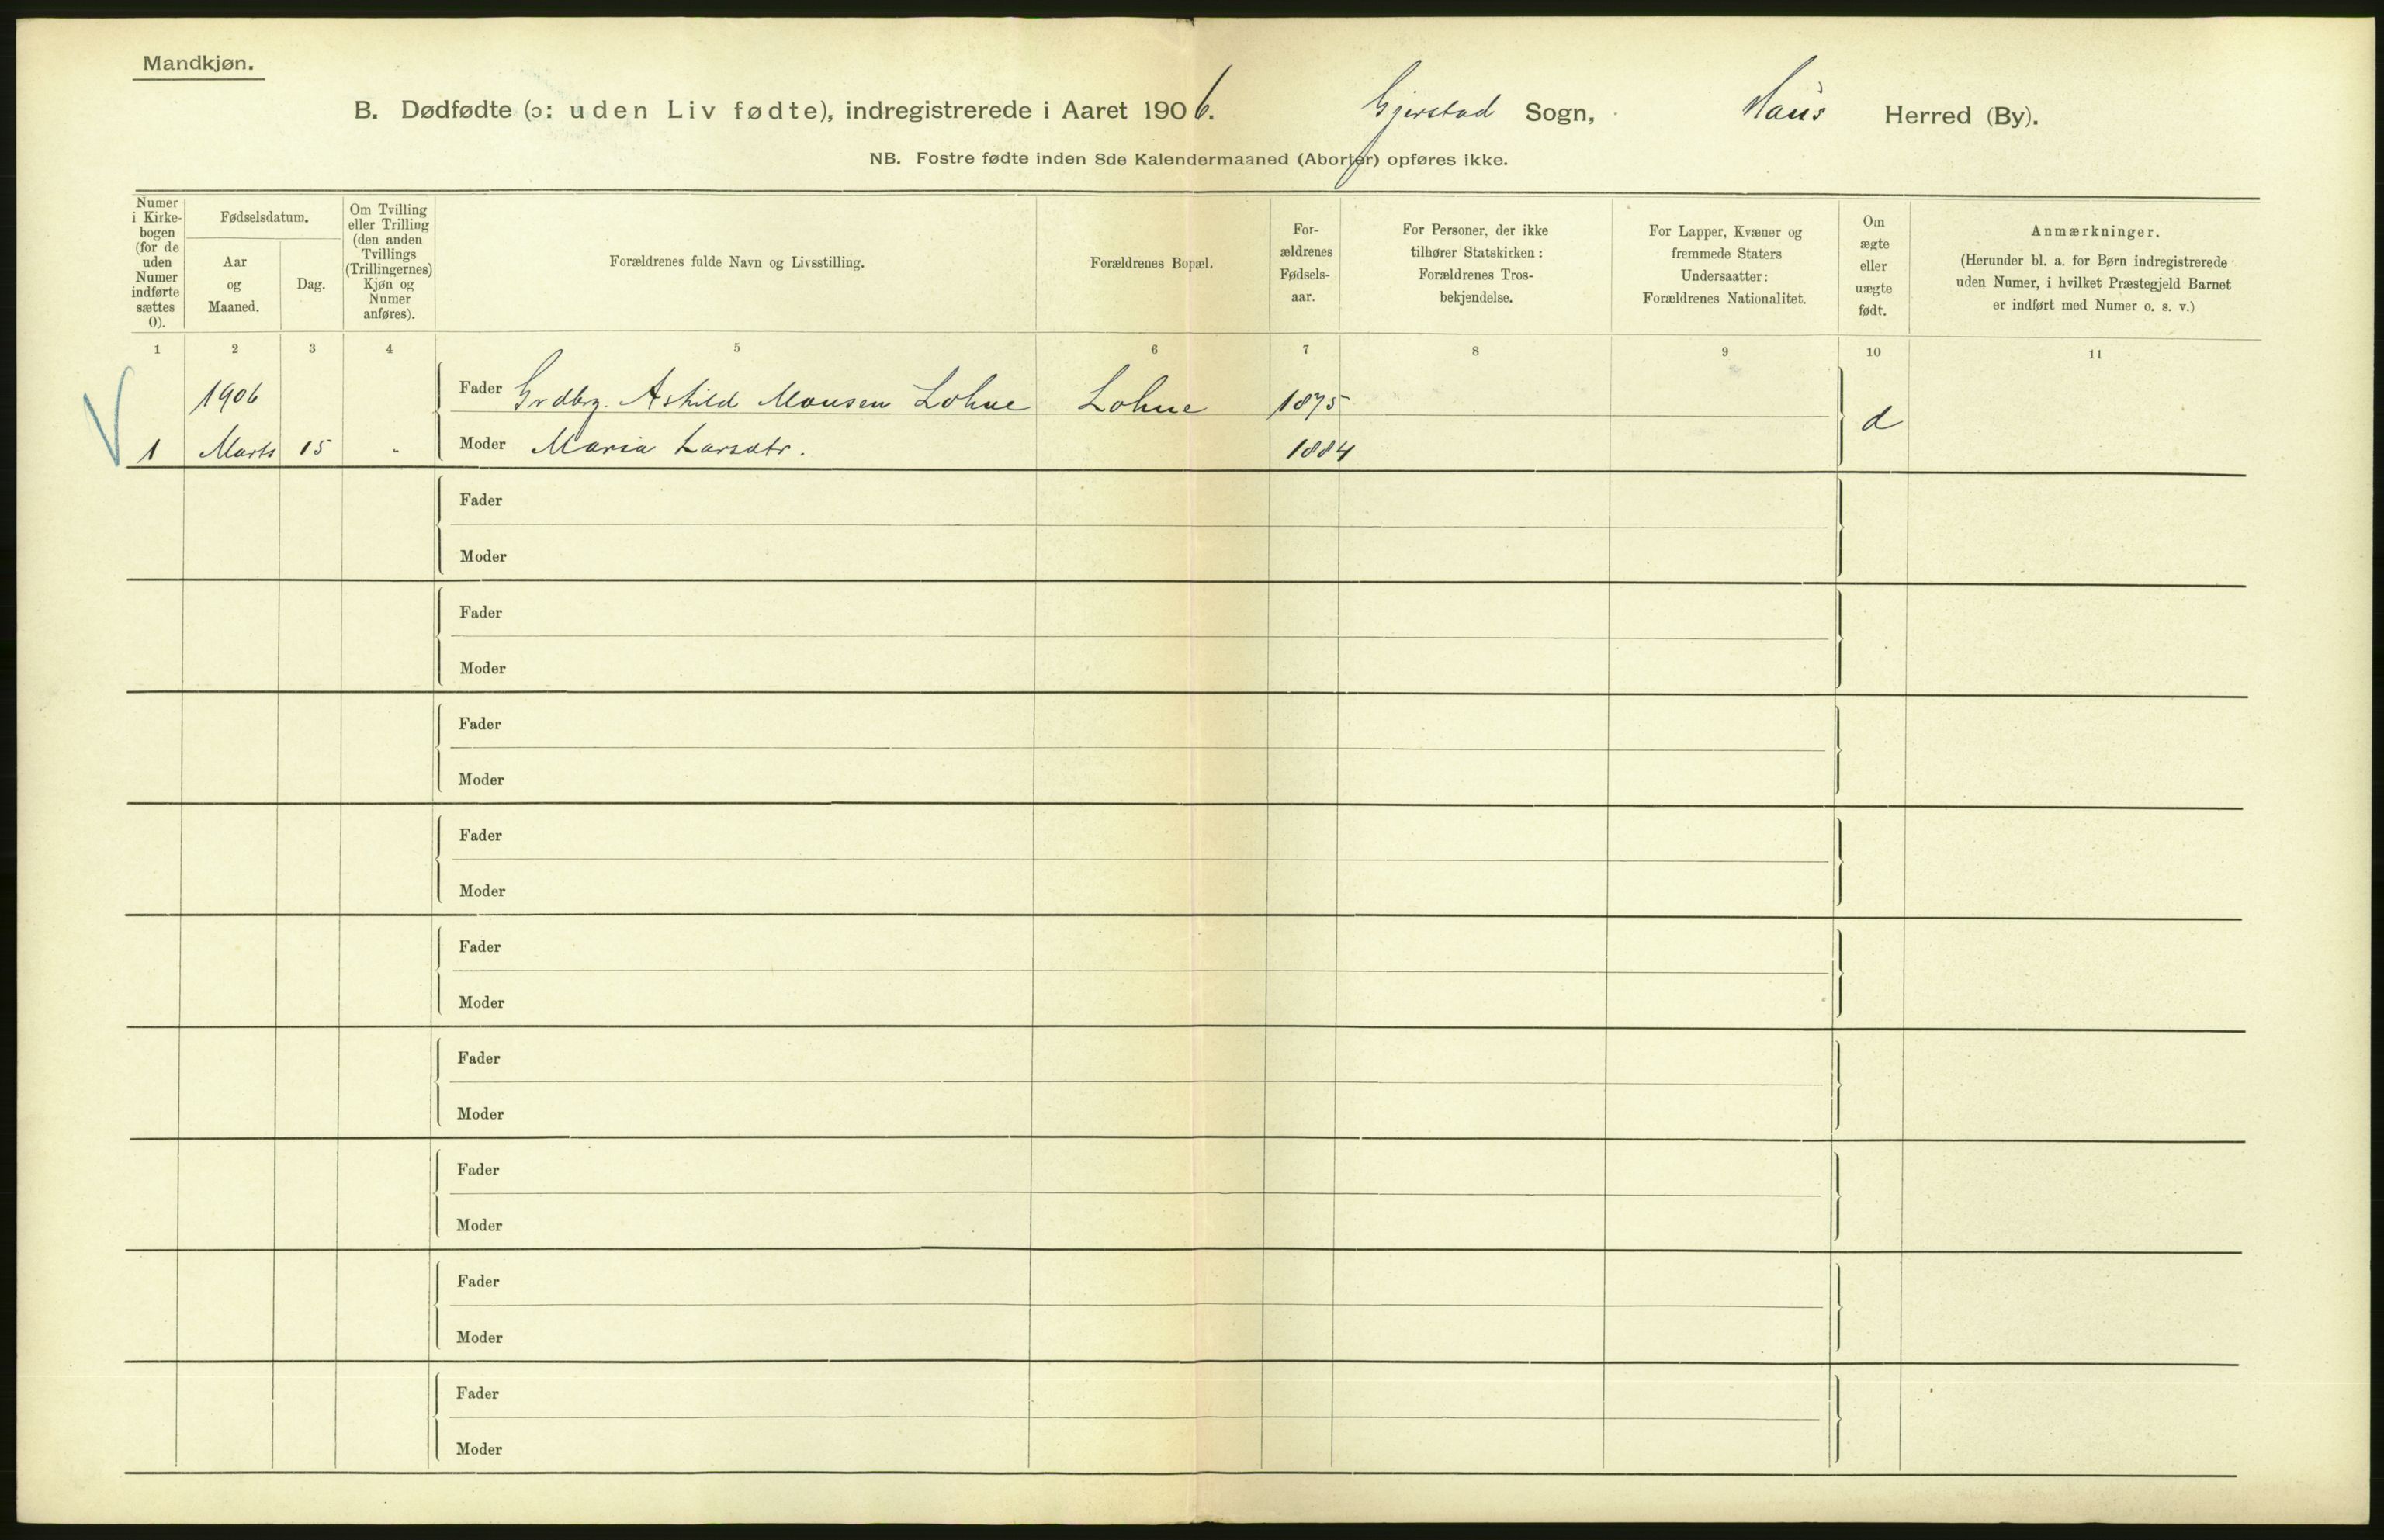 Mandkjøn.
B. Dødfødte (ɔ: uden Liv fødte), indregistrerede i Aaret 1906. Gjerstad Sogn, Haus Herred (By).
NB. Fostre fødte inden 8de Kalendermaaned (Aborter) opføres ikke.
Numer i Kirkebogen (for de uden Numer indførte sættes 0).
Fødselsdatum.
Aar og Maaned.
Dag.
Om Tvilling eller Trilling (den anden Tvillings (Trillingernes) Kjøn og Numer anføres).
Forældrenes fulde Navn og Livsstilling.
Forældrenes Bopæl.
For-ældrenes Fødsels-aar.
For Personer, der ikke tilhører Statskirken: Forældrenes Tros-bekjendelse.
For Lapper, Kvæner og fremmede Staters Undersaatter: Forældrenes Nationalitet.
Om ægte eller uægte født.
Anmærkninger.
(Herunder bl. a. for Børn indregistrerede uden Numer, i hvilket Præstegjeld Barnet er indført med Numer o. s. v.)
1 2 3 4 5 6 7 8 9 10 11
1906 Fader Grdbrg. Askild Monsen Lohne Lohne 1875 d
1 Marts 15 - Moder Maria Larsdtr. 1884
Fader
Moder
Fader
Moder
Fader
Moder
Fader
Moder
Fader
Moder
Fader
Moder
Fader
Moder
Fader
Moder
Fader
Moder